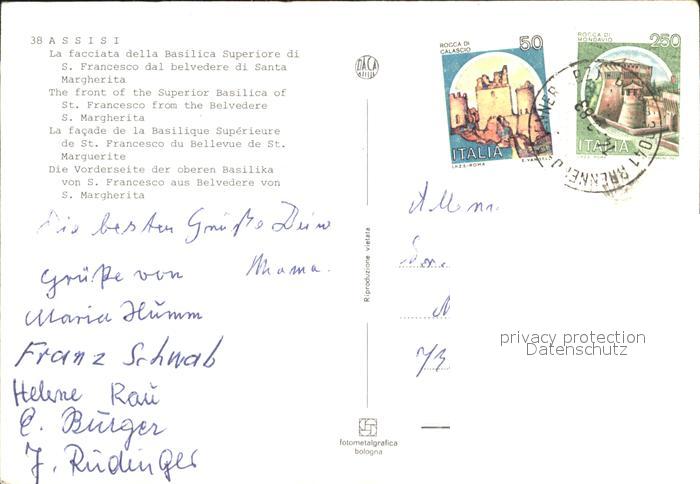 38 ASSISI
La facciata della Basilica Superiore di
S. Francesco dal belvedere di Santa
Margherita
The front of the Superior Basilica of
St. Francesco from the Belvedere
S. Margherita
La façade de la Basilique Supérieure
de St. Francesco du Bellevue de St.
Marguerite
Die Vorderseite der oberen Basilika
von S. Francesco aus Belvedere von
S. Margherita
Die besten Grüße Deine
Mama.
Grüße von
Maria Hümm
Franz Schwab
Helene Rau
E. Bürger
J. Rüdinger
DACA
Riproduzione vietata
fotometalgrafica
bologna
ROCCA DI
CALASCIO
50
ITALIA
I.P.Z.S.-ROMA
ROCCA DI
MONDAVIO
250
ITALIA
BRENNERO
privacy protection
Datenschutz